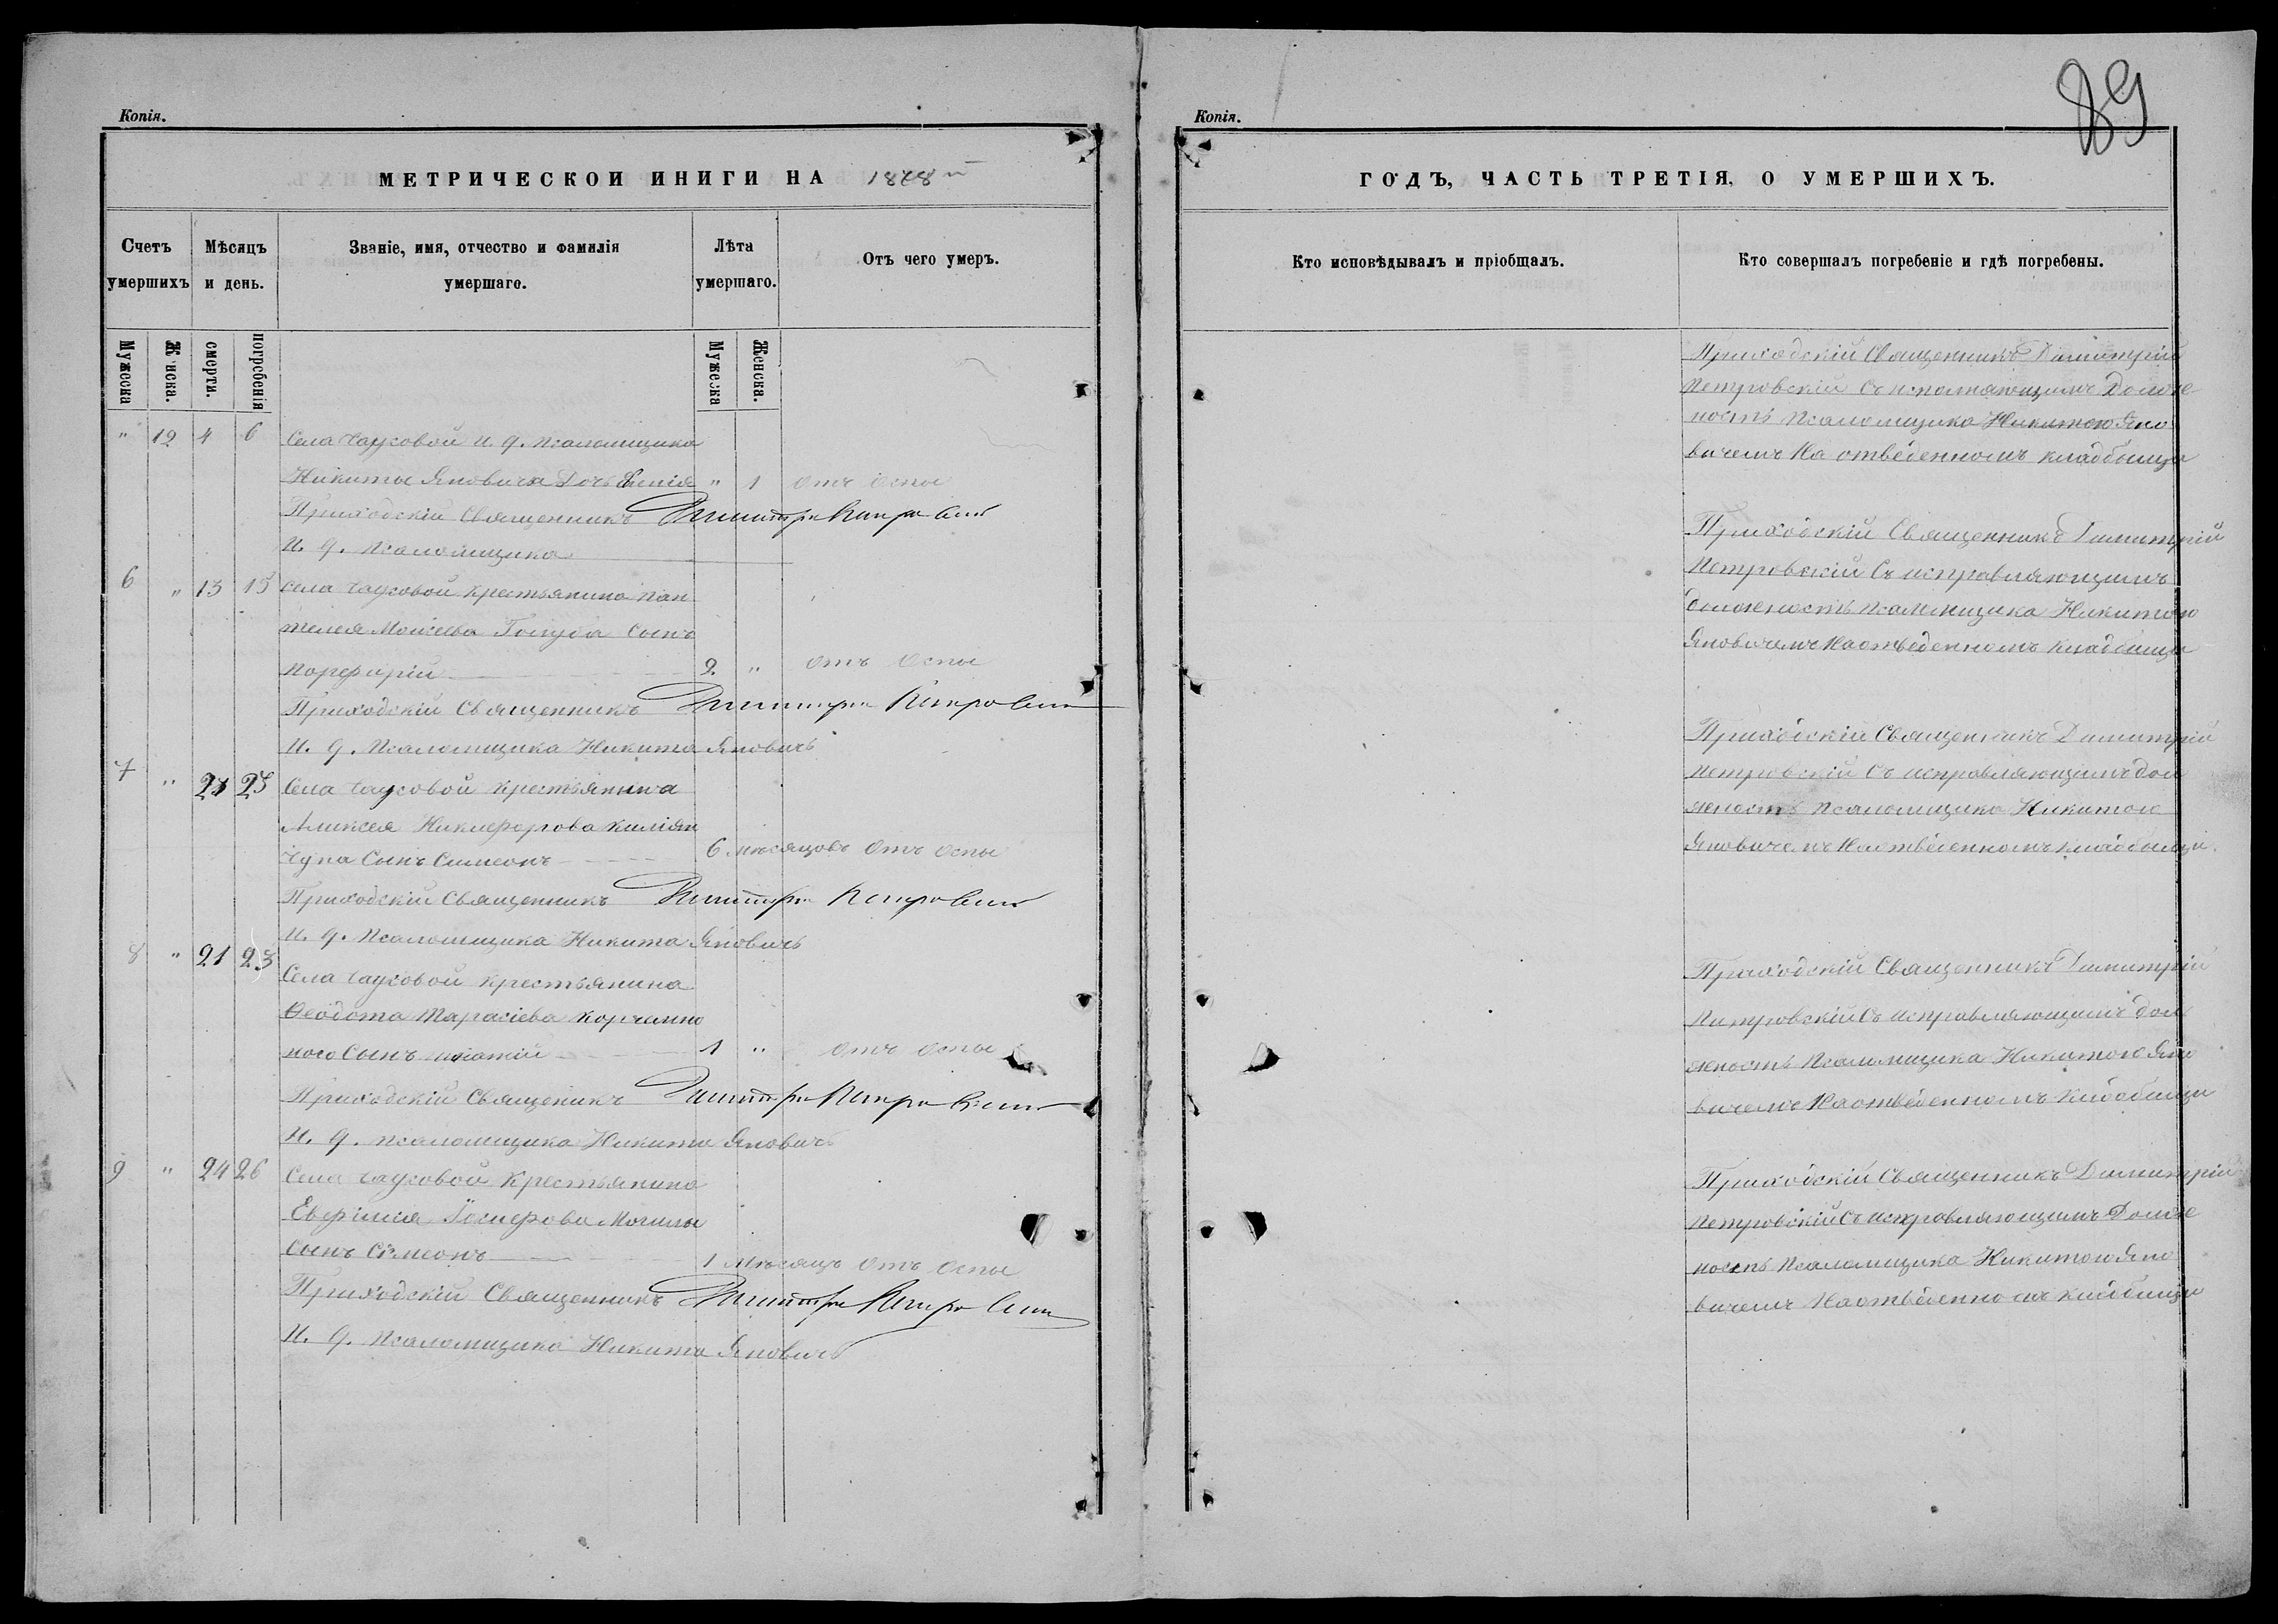 Копія.
МЕТРИЧЕСКОЙ КНИГИ НА 1878й
Счетъ умершихъ
Мѣсяцъ и день.
Званіе, имя, отчество и фамилія умершаго.
Лѣта умершаго.
Отъ чего умеръ.
Мужеска
Женска.
смерти.
погребенія
Мужеска
Женска.
" 12 4 6 Села Чаусовой и. д. псаломщика
Никиты Яновича дочь " 1 отъ оспы
Приходскій Священникъ Димитрій Петровскій
И. д. Псаломщика
6 " 13 15 Села Чаусовой крестьянина Пан
телея Моисеева Голуба сынъ
Порфирій 2 " отъ оспы
Приходскій Священникъ Димитрій Петровскій
И. д. Псаломщика Никита Яновичъ
7 " 23 25 Села Чаусовой крестьянина
Алексея Никифорова
чука Сынъ Симеонъ 6 мѣсяцовъ отъ оспы
Приходскій Священникъ Димитрій Петровскій
И. д. Псаломщика Никита Яновичъ
8 " 21 23
Села Чаусовой крестьянина
Ѳеодота Тарасіева Корчемно
ного Сынъ 1 " отъ оспы
Приходскій Священикъ Димитрій Петровскій
И. д. псаломщика Никита Яновичъ
9 " 24 26 Села Чаусовой Крестьянина
Евфимія Могилы
Сынъ Сѵмеонъ 1 мѣсяцъ отъ оспы
Приходскій Священникъ Димитрій Петровскій
И. д. Псаломщика Никита Яновичъ
Копія.
89
ГОДЪ, ЧАСТЬ ТРЕТІЯ, О УМЕРШИХЪ.
Кто исповѣдывалъ и пріобщалъ.
Кто совершалъ погребеніе и гдѣ погребены.
Приходскій Священникъ Димитрій
Петровскій съ исполняющимъ Долже
ность Псаломщика Никитою Яно
вичемъ На отведенномъ кладбыщи
Приходскій Священникъ Димитрій
Петровскій Съ исправляющимъ
должность псаломщика Никитою
Яновичемъ На отведенномъ кладбищи
Приходскій Священникъ Димитрій
Петровскій Съ исправляющимъ дол
жность Псаломщика Никитою
Яновичемъ На отведенномъ кладбыщи.
Приходскій Священникъ Димитрій
Питровскій Съ исправляющимъ дол
жность Псаломщика Никитою Яно
вичемъ На отведенномъ кладбищи
Приходскій Священникъ Димитрій
Петровскій Съ исправляющимъ Долже
ность Псаломщика Никитою Яно
вичемъ На отведенномъ кладбищи